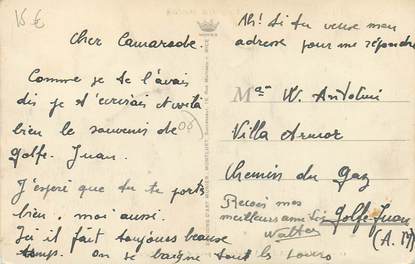 15 €
Cher Camarade.
Comme je te l'avais
dis je t'écrirais et voilà
bien le souvenir de
Golfe-Juan.
J'espère que tu te porte
bien, moi aussi.
Ici il fait toujours beau
temps. On se baigne tout les jours
Ah! Si tu veux mon
adresse pour me répondre
Mr W. Antolini
Villa Armor
Chemin du Gaz
Golfe-Juan
(A. M)
Reçois mes
meilleurs amitiés
Walter